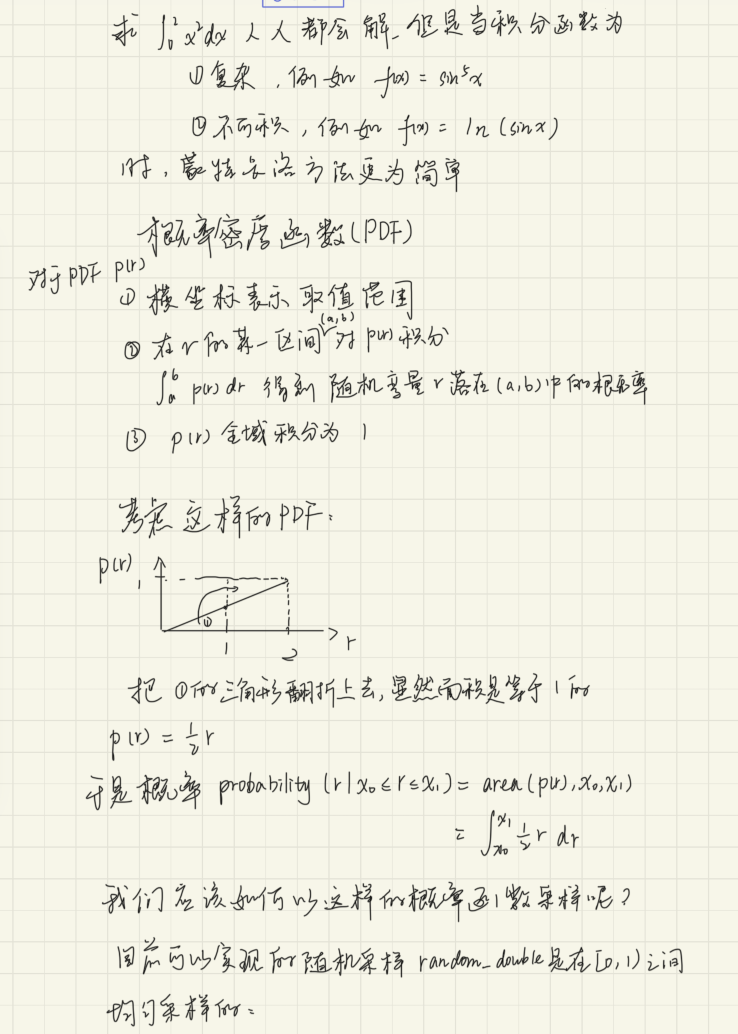 求 ∫₀² x²dx 人人都会解. 但是当积分函数为
① 复杂, 例如 f(x) = sin⁵x
② 不可积, 例如 f(x) = ln(sinx)
时, 蒙特卡洛方法更为简单
概率密度函数(PDF)
对于PDF p(r)
① 横坐标表示取值范围
② 在r的某一区间(a,b)对p(r)积分
∫ₐᵇ p(r) dr 得到随机变量r落在(a,b)中的概率
③ p(r)全域积分为 1
考虑这样的PDF:
p(r)
1
①
1 2 r
把①的三角形翻折上去, 显然面积是等于1的
p(r) = ½r
于是概率 probability (r|x₀≤r≤x₁) = area(p(r),x₀,x₁)
= ∫ₓ₀ˣ¹ ½ r dr
我们应该如何以这样的概率函数采样呢?
目前可以实现的随机采样 random_double是在[0,1)之间
均匀采样的: